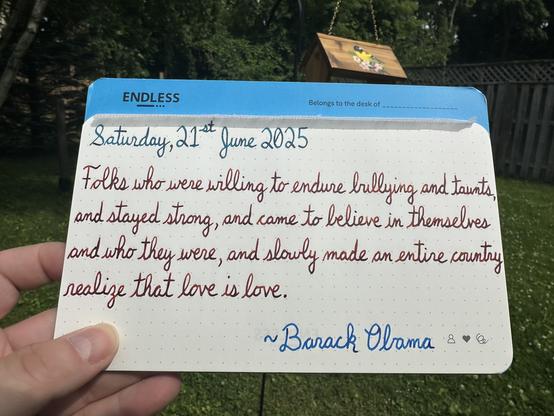 ENDLESS
Belongs to the desk of
Saturday, 21st June 2025
Folks who were willing to endure bullying and taunts,
and stayed strong, and came to believe in themselves
and who they were, and slowly made an entire country
realize that love is love.
~Barack Obama